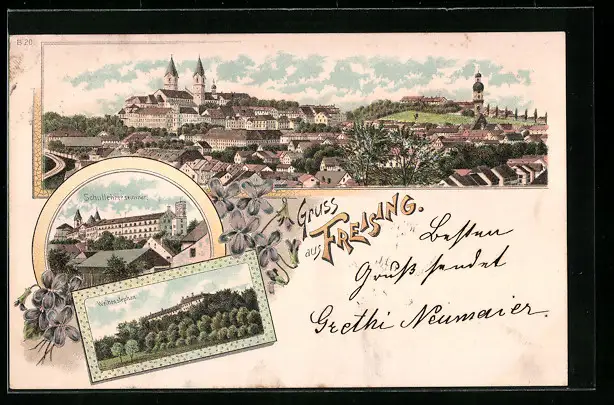 B 20
Schullehrerseminar
Weihenstephan
Gruss
aus FREISING.
Besten
Gruß sendet
Grethi Neumaier.